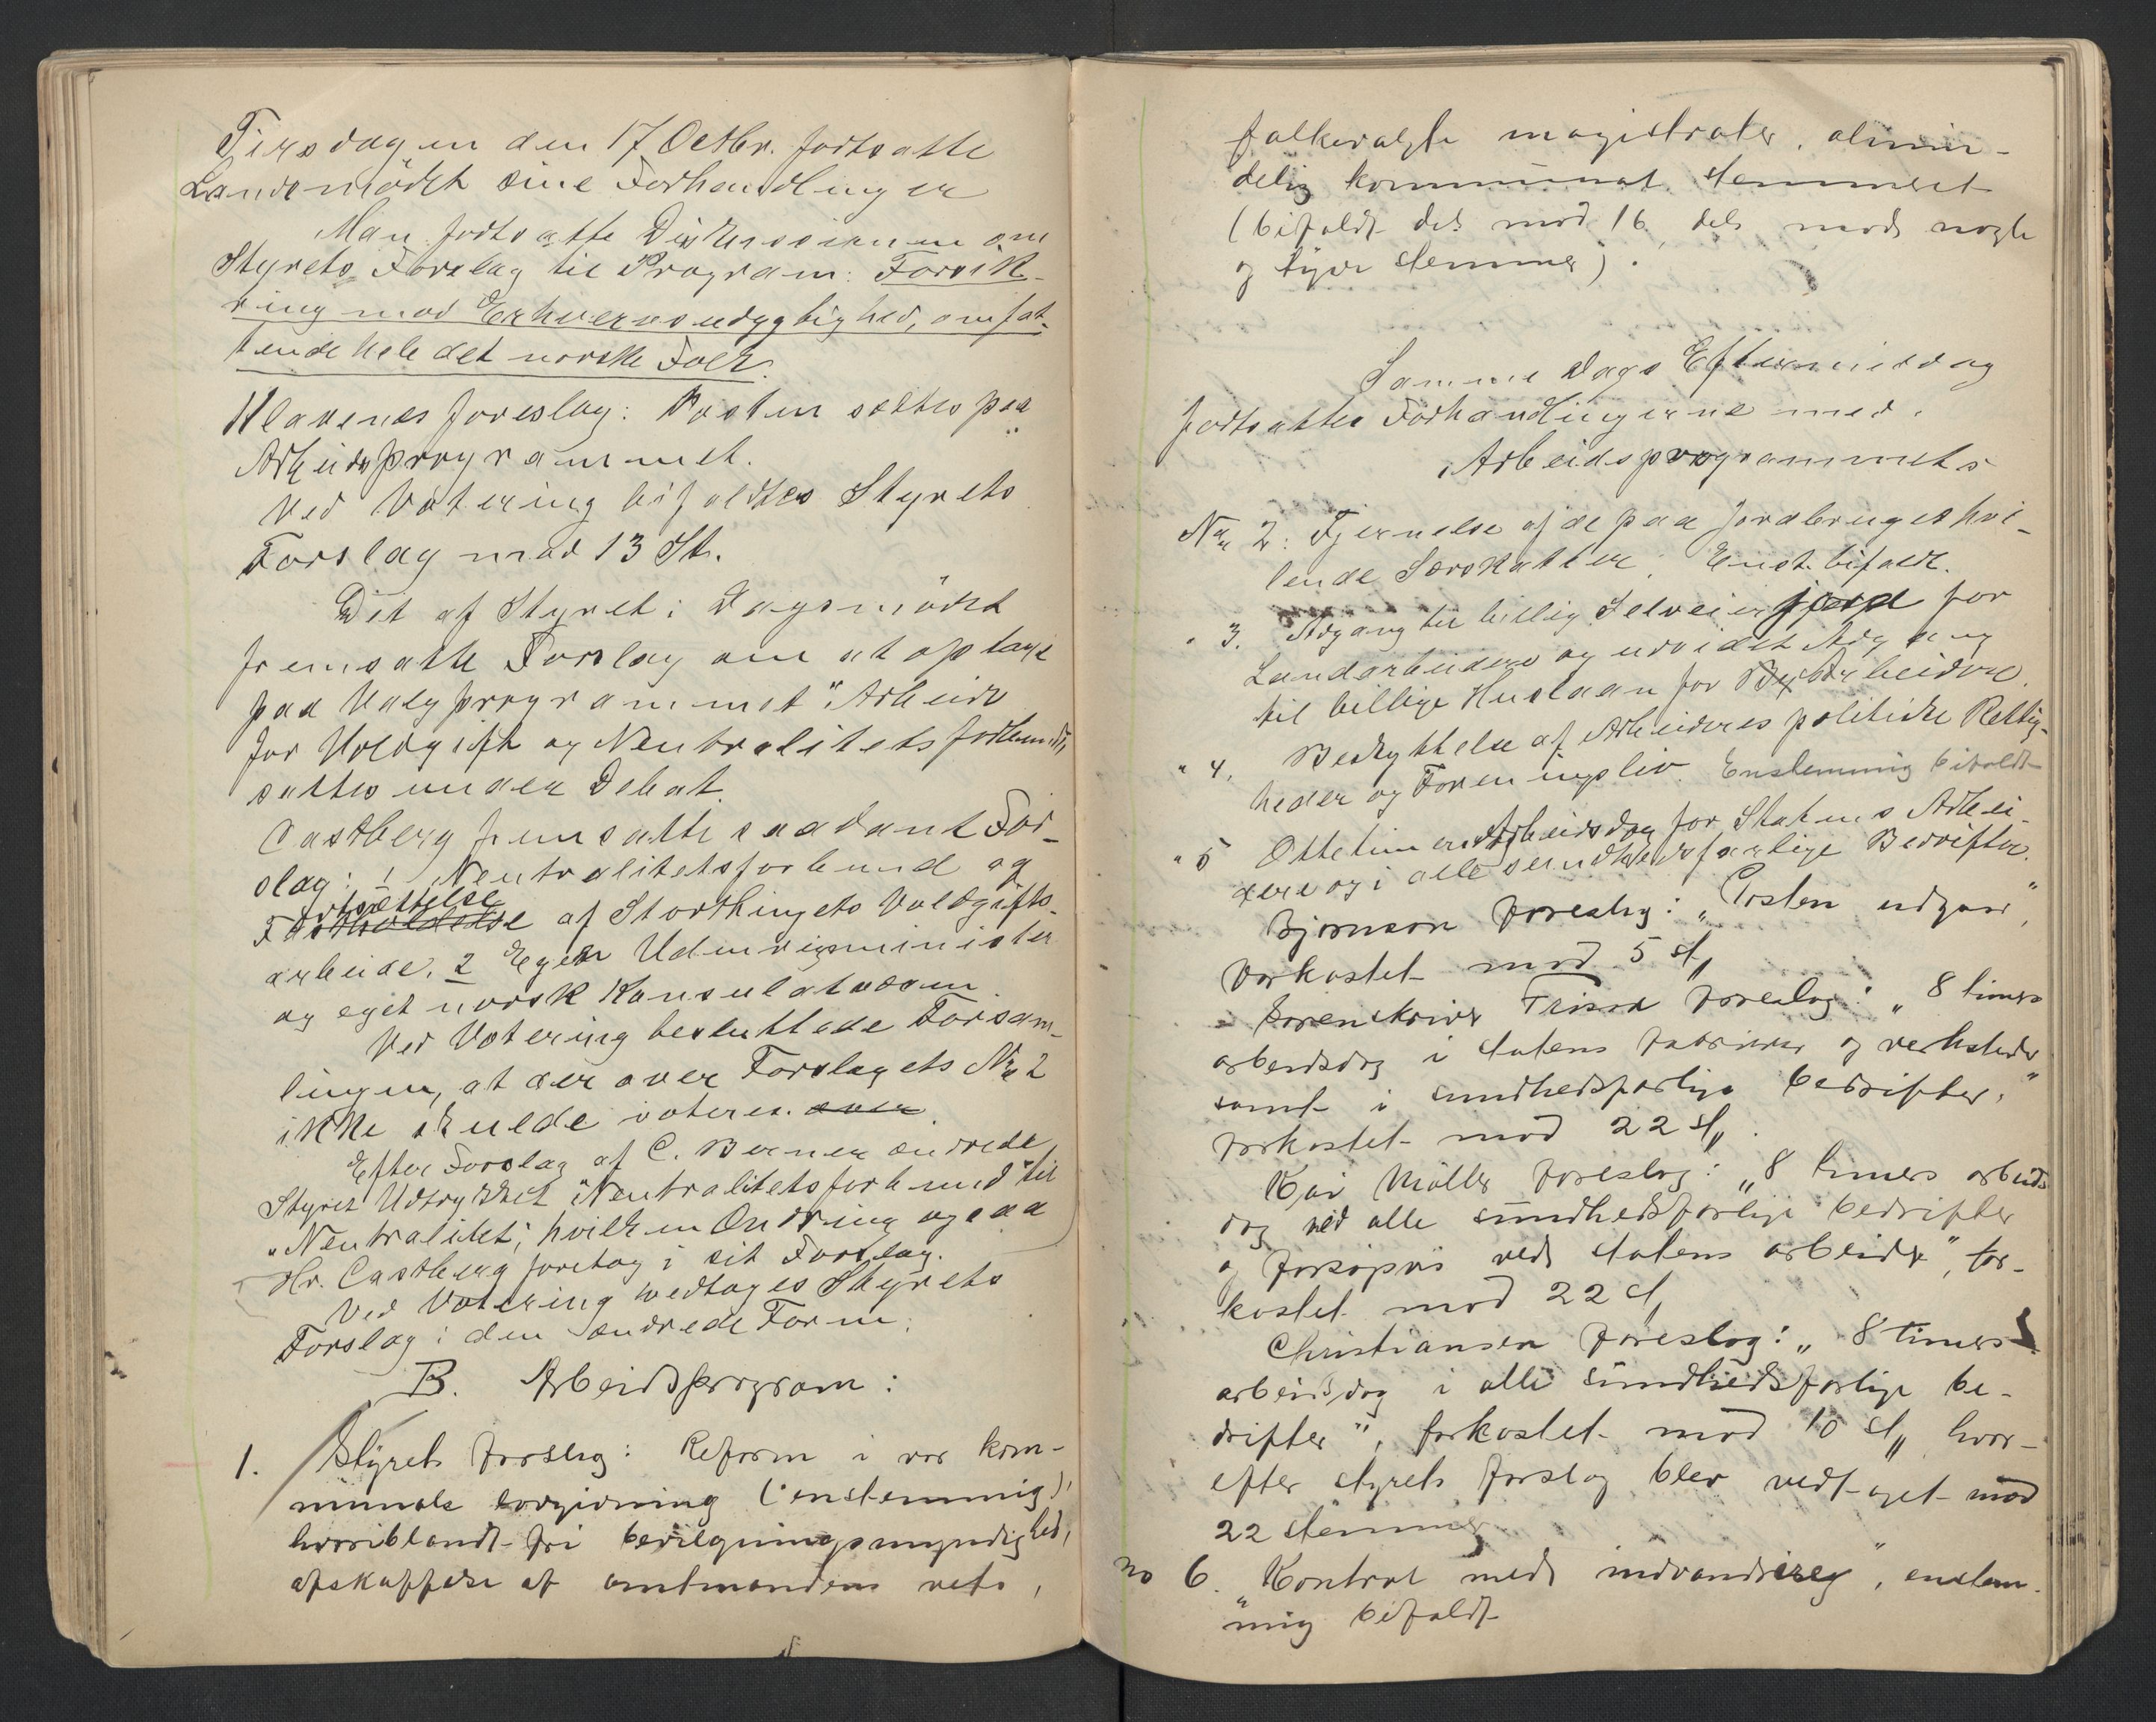 Tirsdagen den 17 Octbr. fortsatte
Landsmödet sine Forhandlinger
Man fortsatte Diskussionen om
Styrets Forslag til Program: Forsik-
ring mod Erhvervsudygtighed, omfat-
tende hele det norske Folk.
Klavenes foreslog: Posten sættes paa
Arbeidsprogrammet.
Ved Votering bifaldtes Styrets
Forslag mod 13 St.
Det af Styret i Dagsmödet
fremsatte Forslag om at optage
paa Valgprogrammet "Arbeide
for Voldgift og Neutralitetsforbund",
sattes under Debat.
Castberg fremsatte saadant For-
slag: 1 Neutralitetsforbund og
Fortsættelse
Fastholdelse af Storthingets Voldgifts-
arbeide. 2 Egen Udenrigsminister
og eget norsk Konsulatvæsen.
Ved Votering besluttede Forsam-
lingen, at der over Forslagets No 2
ikke skulde voteres over
Efter Forslag af C. Berner ændrede
Styret Udtrykket "Neutralitetsforbund" til
"Neutralitet", hvilken Ændring ogsaa
Hr. Castberg foretog i sit Forslag.
Ved Votering vedtoges Styrets
Forslag i den ændrede Form.
B. Arbeidsprogram:
1. Styrets forslag: Reform i vor kom-
munale lovgivning (enstemmig),
hvoriblandt fri bevilgningsmyndighed,
afskaffelse af amtmandens veto,
folkevalgte magistrater, almin-
delig kommunal stemmeret
(bifaldt dels mod 16, dels mod nogle
og tyve stemmer).
Samme Dags Eftermiddag
fortsattes Forhandlingerne med
Arbeidsprogrammets
No 2: Fjernelse af de paa Jordbruget hvi-
lende Særskatter. Enst. bifaldt.
" 3. Adgang til billig Selveierjord for
Landarbeidere og udvidet Adgang
til billige Huslaan for Byarbeidere.
" 4. Beskyttelse af Arbeideres politiske Rettig-
heder og Foreningsliv. Enstemmig bifaldt
" 5 Ottetimers Arbeidsdag for Statens Arbei-
dere og i alle sundhedsfarlige Bedrifter.
Bjørnson foreslog: "Posten udgaar",
forkastet mod 5 st.
Sorenskriver foreslog: "8 timers
arbeidsdag i statens fabrikker og verksteder
samt i sundhedsfarlige bedrifter."
forkastet mod 22 st.
Kai Möller foreslog: "8 timers arbeids-
dag ved alle sundhedsfarlige bedrifter
og forsøgsvis ved statens arbeider", for-
kastet mod 22 st.
Christiansen foreslog: "8 timers
arbeidsdag i alle sundhedsfarlige be-
drifter", forkastet mod 10 st., hvor-
efter styrets forslag blev vedtaget mod
22 stemmer
no 6. "Kontrol med indvandring", enstem-
mig bifaldt